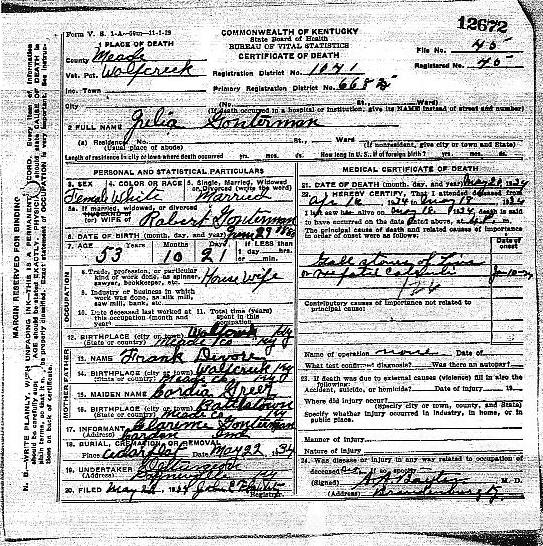 Form V. S. 1-A
12672
COMMONWEALTH OF KENTUCKY
State Board of Health
BUREAU OF VITAL STATISTICS
CERTIFICATE OF DEATH
File No. 45
Registered No. 45
1 PLACE OF DEATH
County Meade
Vot. Pct. Wolfcreek
Registration District No. 1041
Inc. Town
Primary Registration District No.
City
(No. St., Ward)
(If death occurred in a hospital or institution, give its NAME instead of street and number)
2 FULL NAME Gonterman
(a) Residence. No. St., Ward
(Usual place of abode) (If nonresident, give city or town and State)
Length of residence in city or town where death occurred yrs. mos. ds. How long in U. S., if of foreign birth? yrs. mos. ds.
PERSONAL AND STATISTICAL PARTICULARS
3. SEX 4. COLOR OR RACE 5. Single, Married, Widowed or Divorced (write the word)
Female White Married
5a. If married, widowed, or divorced
HUSBAND of
(or) WIFE of Robert Gonterman
6. DATE OF BIRTH (month, day, and year) June 29
7. AGE Years Months Days If LESS than
53 10 21 1 day hrs. min.
OCCUPATION
8. Trade, profession, or particular kind of work done, as spinner, sawyer, bookkeeper, etc. House wife
9. Industry or business in which work was done, as silk mill, saw mill, bank, etc.
10. Date deceased last worked at this occupation (month and year)
11. Total time (years) spent in this occupation
12. BIRTHPLACE (city or town) Wolfcreek Ky
(State or country) Meade Co Ky
FATHER
13. NAME Frank Devore
14. BIRTHPLACE (city or town) Wolfcreek Ky
(State or country) Meade Co Ky
MOTHER
15. MAIDEN NAME Cordia Greer
16. BIRTHPLACE (city or town) Battletown
(State or country) Meade Co Ky
17. INFORMANT Clarence Gonterman
(Address) Ind
18. BURIAL, CREMATION, OR REMOVAL
Place Cedar flat Date May 22, 1934
19. UNDERTAKER
(Address) Ky
20. FILED May 22, 1934 John C
Registrar.
MEDICAL CERTIFICATE OF DEATH
21. DATE OF DEATH (month, day, and year) May 20, 1934
22. I HEREBY CERTIFY, That I attended deceased from
Apr 16 1934 to May 18 1934
I last saw her alive on May 18 1934, death is said
to have occurred on the date stated above, at m.
The principal cause of death and related causes of importance
in order of onset were as follows:
Date of onset
Gall stones of Liver
or Hepatic Calculi
Contributory causes of importance not related to
principal cause:
Name of operation none Date of
What test confirmed diagnosis? Was there an autopsy?
23. If death was due to external causes (violence) fill in also the
following:
Accident, suicide, or homicide? Date of injury 19
Where did injury occur?
(Specify city or town, county, and State)
Specify whether injury occurred in industry, in home, or in
public place.
Manner of injury
Nature of injury
24. Was disease or injury in any way related to occupation of
deceased? If so, specify
(Signed) M. D.
(Address) Brandenburg Ky
MARGIN RESERVED FOR BINDING
N. B.—WRITE PLAINLY, WITH UNFADING INK—THIS IS A PERMANENT RECORD. Every item of information
should be carefully supplied. AGE should be stated EXACTLY. PHYSICIANS should state CAUSE OF DEATH in
plain terms, so that it may be properly classified. Exact statement of OCCUPATION is very important. See instructions
on back of certificate.